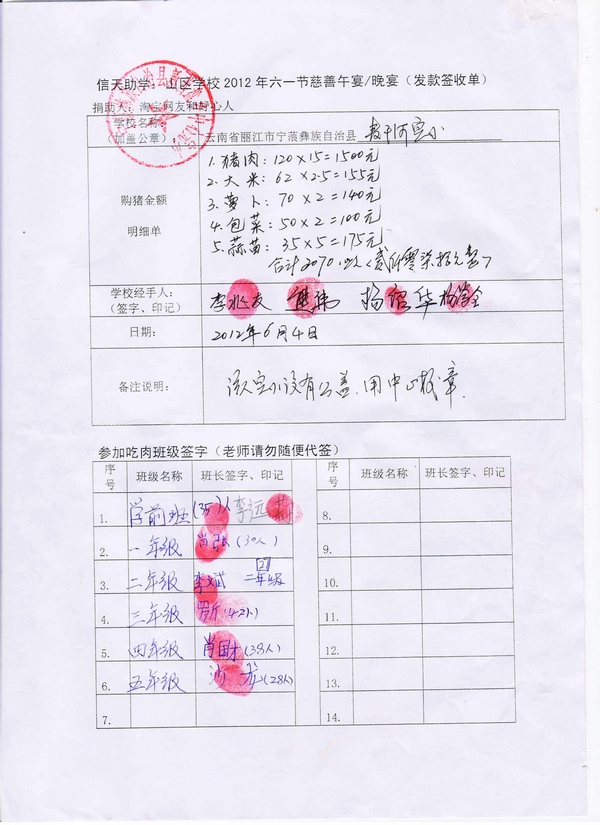 信天助学：山区学校2012年六一节慈善午宴/晚宴（发款签收单）
捐助人：淘宝网友和好心人
学校名称
（加盖公章）
云南省丽江市宁蒗彝族自治县
购猪金额
明细单
1. 猪肉：120×15=1500元
2. 大米：62×2.5=155元
3. 萝卜：70×2=140元
4. 包菜：50×2=100元
5. 蒜苗：35×5=175元
合计2070
学校经手人：
（签字、印记）
李兆友 熊伟 杨信华
日期：
2012年6月4日
备注说明：
该完小没有公盖.用中心校章.
参加吃肉班级签字（老师请勿随便代签）
序号 班级名称 班长签字、印记 序号 班级名称 班长签字、印记
1. 学前班 (35)人 李远 8.
2. 一年级 (30人) 9.
3. 二年级 李文斌 二年级 27 10.
4. 三年级 (42人) 11.
5. 四年级 肖国才 (38人) 12.
6. 五年级 沙龙 (28人) 13.
7. 14.